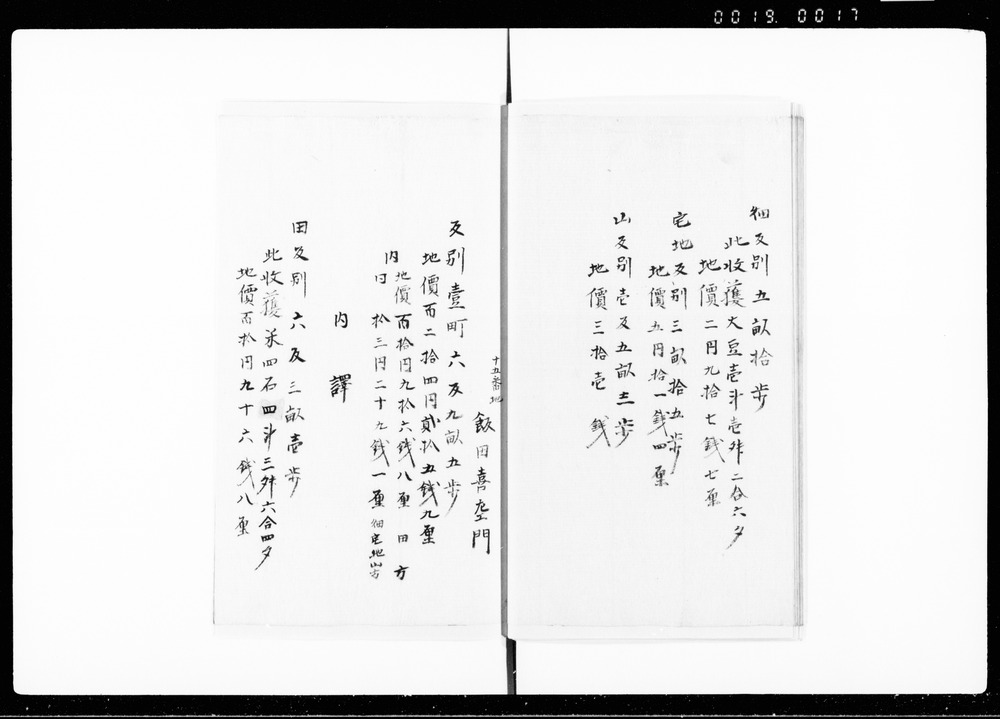 0019.0017
畑反別五畝拾歩
此收獲大豆壱斗壱舛二合六夕
地價二円九拾七銭七厘
宅地反別三畝拾五歩
地價五円拾一銭四厘
山反別壱反五畝十二歩
地價三拾壱銭
十五番地
飯田喜左門
反別壹町六反九畝五歩
地價百二拾四円貳拾五銭九厘
内
地價百拾円九拾六銭八厘 田方
〃拾三円二十九銭一厘 畑宅地山方
内譯
田反別六反三畝壱歩
此收獲米四石四斗三舛六合四夕
地價百拾円九十六銭八厘